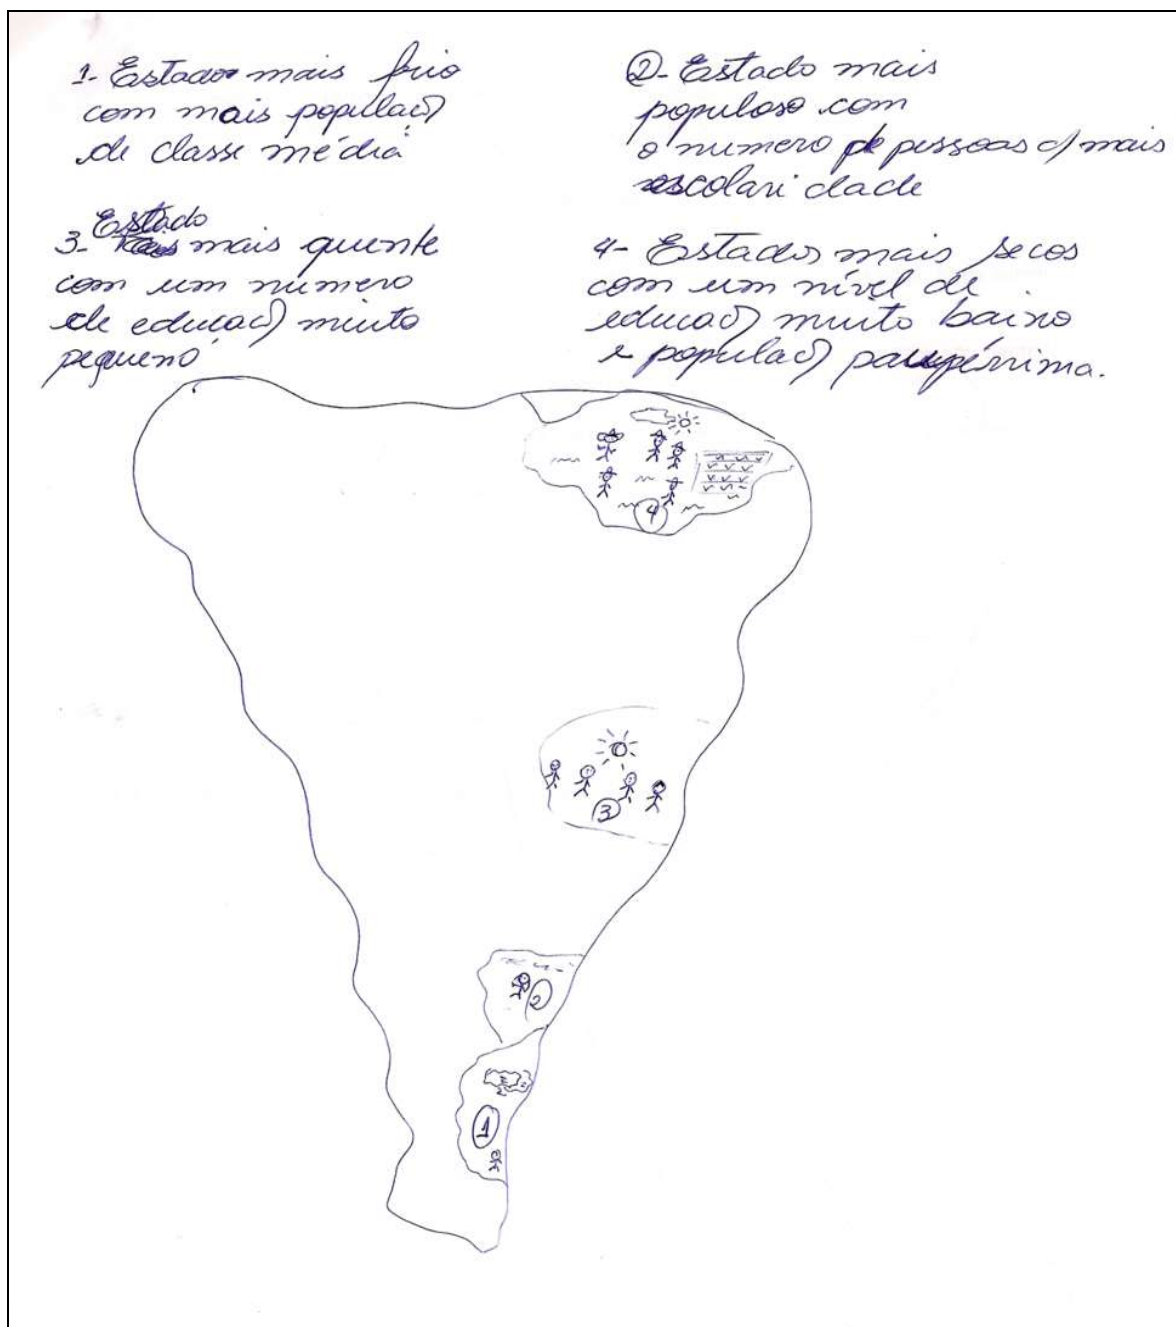 1- Estados mais frio
com mais populaçã
de classe média
②- Estado mais
populoso com
o numero de pessoas c/ mais
escolaridade
3- Estado mais quente
com um numero
de educaçã muito
pequeno
4- Estados mais secos
com um nível de
educaçã muito baixo
e populaçã paupérrima.
4
3
2
1